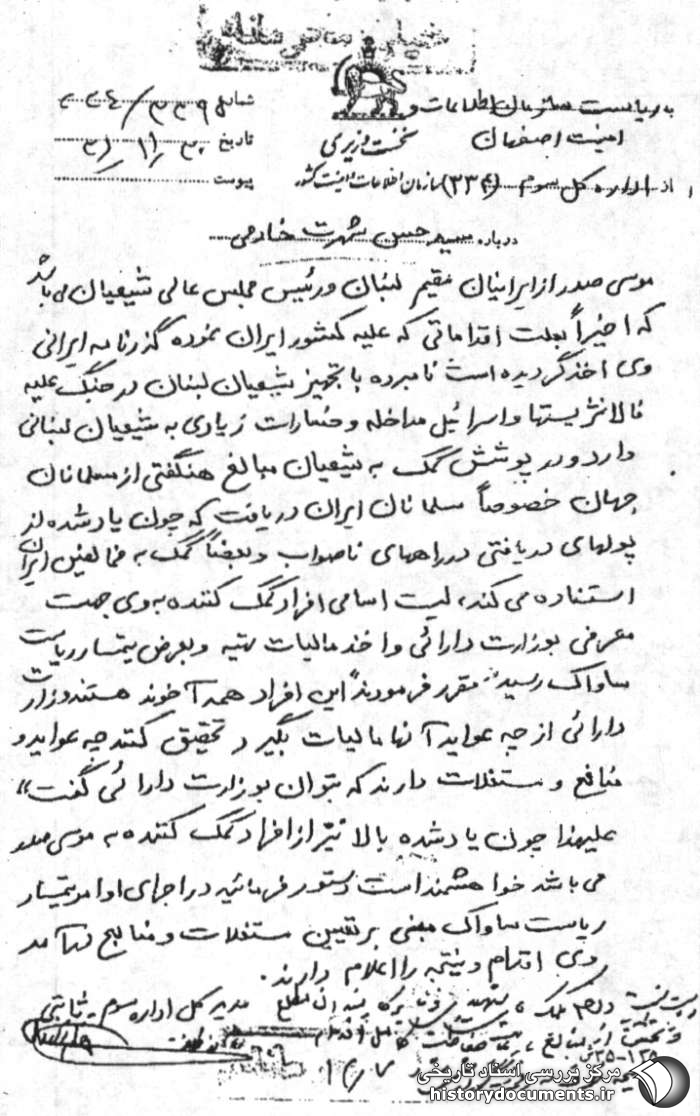 به ریاست سازمان اطلاعات و
امنیت اصفهان
نخست وزیری
شماره ۳۳۴/۳۳۹
تاریخ
پیوست
از اداره کل سوم (۳۳۴) سازمان اطلاعات و امنیت کشور
درباره سید حسن شهرت خادمی
موسی صدر از ایرانیان مقیم لبنان و رئیس مجلس عالی شیعیان می باشد
که اخیراً بعلت اقداماتی که علیه کشور ایران نموده گذرنامه ایرانی
وی اخذ گردیده است نامبرده با تجهیز شیعیان لبنان در جنگ علیه
فالانژیستها و اسرائیل مداخله و خسارات زیادی به شیعیان لبنانی
وارد و در پوشش کمک به شیعیان مبالغ هنگفتی از مسلمانان
جهان خصوصاً مسلمانان ایران دریافت که چون یاد شده از
پولهای دریافتی در راههای ناصواب و بعضاً کمک به مخالفین ایران
استفاده می کند، لیست اسامی افراد کمک کننده به وی جهت
معرفی بوزارت دارائی و اخذ مالیات تهیه و بعرض تیمسار ریاست
ساواک رسید مقرر فرمودند "این افراد همه آخوند هستند وزارت
دارائی از چه عواید آنها مالیات بگیرد تحقیق کنند چه عواید و
منافع و مستغلات دارند که بتوان بوزارت دارائی گفت"
علیهذا چون یاد شده بالا نیز از افراد کمک کننده به موسی صدر
می باشد خواهشمند است دستور فرمائید در اجرای اوامر تیمسار
ریاست ساواک مبنی بر تعیین مستغلات و منابع درآمد
وی اقدام و نتیجه را اعلام دارند.
مدیر کل اداره سوم - ثابتی
مرکز بررسی اسناد تاریخی
historydocuments.ir